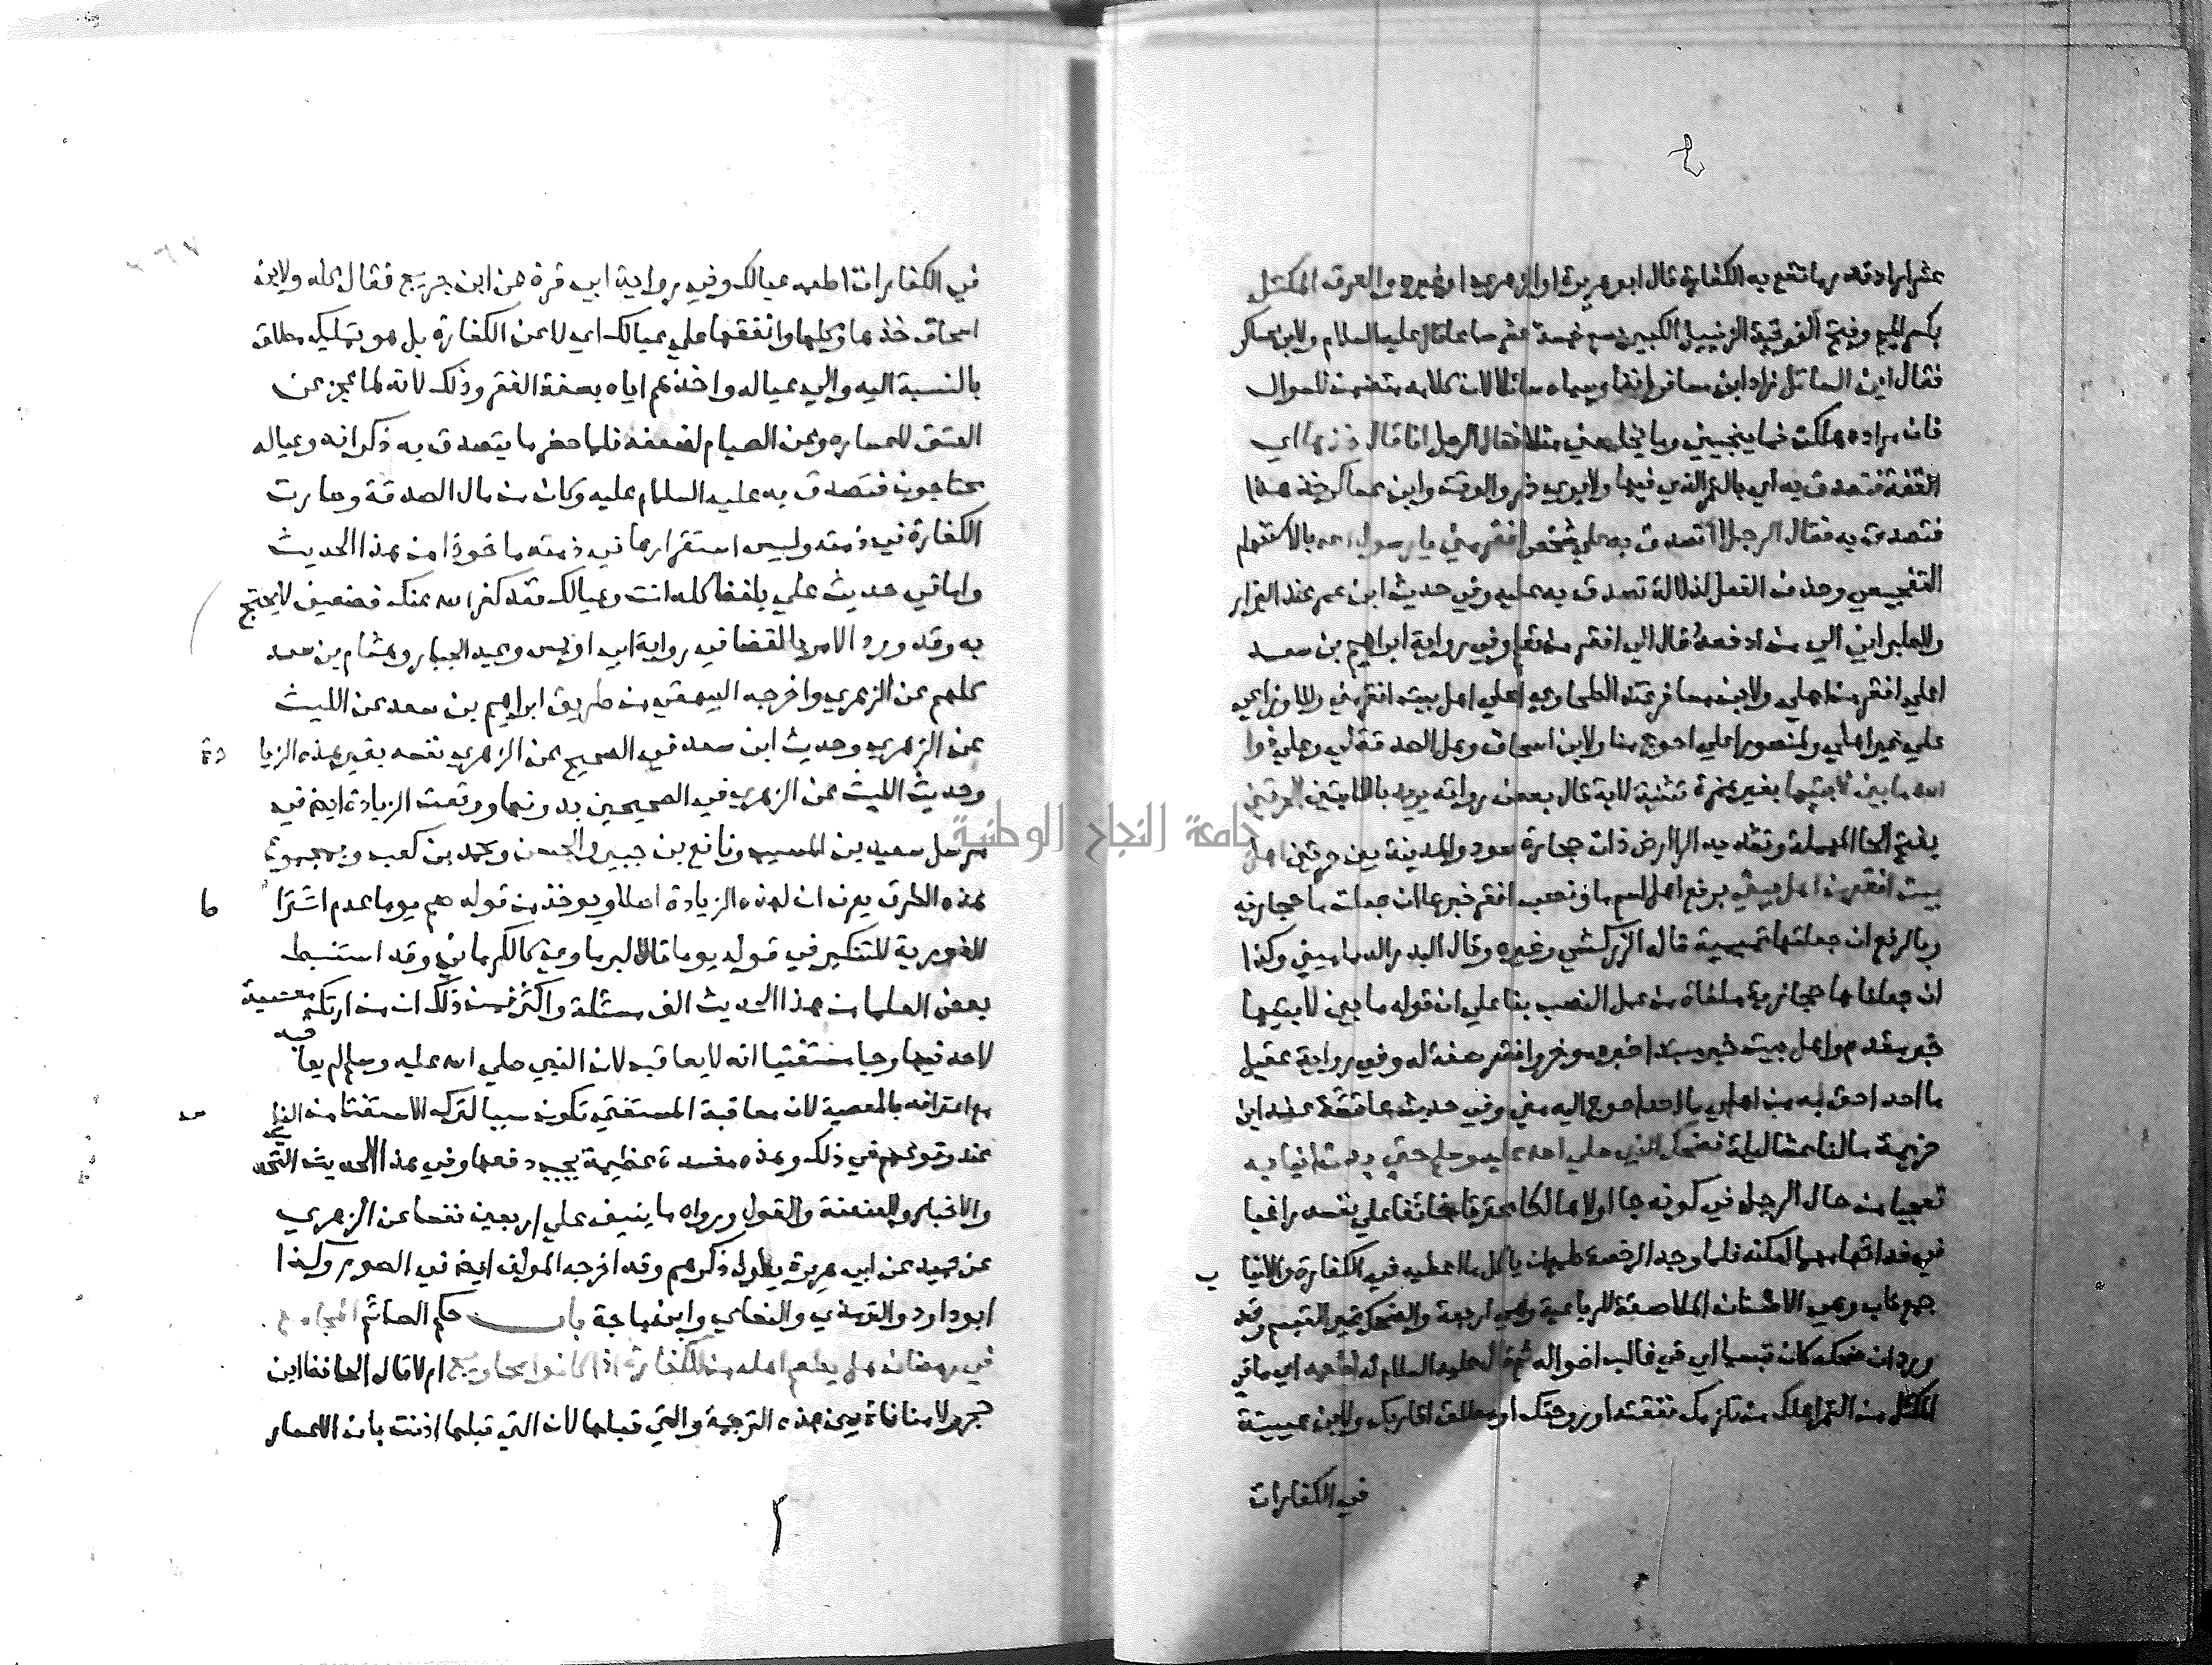 عشر ارادته ما تقع به الكفارة قال ابو هريرة او الزهري او غيره والعرق المكتل
بكسر الميم وفتح الفوقية الزنبيل الكبير يسع خمسة عشر صاعا قال عليه السلام ولابن عساكر
فقال اين السائل زاد ابن مسافر انفا وسماه سائلا لان كلامه متضمن للسوال
فان مراده هلكت فما ينجيني وما يخلصني مثلا فقال الرجل انا قال خذها اي
القفة فتصدق به اي بالتمر الذي فيها ولابوي ذر والوقت وابن عساكر خذ هذا
فتصدق به فقال الرجل اتصدق به على شخص افقر مني يا رسول الله بالاستفهام
التعجبي وحذف الفعل لدلالة تصدق به عليه وفي حديث ابن عمر عند البزار
والطبراني الى من ادفعه قال الى افقر من تعلم وفي رواية ابراهيم بن سعد
اعلي افقر من اهلي ولابن مسافر عند الطحاوي اعلي اهل بيت افقر مني وللاوزاعي
علي غير اهلي ولمنصور اعلي احوج منا ولابن اسحاق وهل الصدقة الي وعلي فوا
الله ما بين لابتيها بغير همزة تثنية لابة قال بعض رواته يريد باللابتين الحرتين
بفتح الحا المهملة وتشديد الرا ارض ذات حجارة سود والمدينة بين حرتين اهل
بيت افقر من اهل بيتي برفع اهل اسم ما ونصب افقر خبرها ان جعلت ما حجازية
وبالرفع ان جعلتها تميمية قاله الزركشي وغيره وقال البدر الدماميني وكذا
ان جعلناها حجازية ملغاة من عمل النصب بنا علي ان قوله ما بين لابتيها
خبر مقدم واهل بيت مبتدا موخر وافقر صفة له وفي رواية عقيل
ما احد احق به من اهلي ما احد احوج اليه مني وفي حديث عائشة عند ابن
خزيمة ما لنا عشا ليلة فضحك النبي صلي الله عليه وسلم حتي بدت انيابه
تعجبا من حال الرجل في كونه جا اولا هالكا محترقا خائفا علي نفسه راغبا
في فدائها مهما امكنه فلما وجد الرخصة طمع ان ياكل ما اعطيه في الكفارة والانيا ب
جمع ناب وهي الاسنان الملاصقة للرباعية وهي اربعة والضحك غير التبسم وقد
ورد ان ضحكه كان تبسما اي في غالب احواله ثم قال عليه السلام له اطعمه اي ما في
المكتل من التمر اهلك من تلزمك نفقته او زوجتك او مطلق اقاربك ولابن عيينة
في الكفارات
في الكفارات اطعمه عيالك وفي رواية ابي قرة عن ابن جريج فقال كله ولابن
اسحاق خذها وكلها وانفقها علي عيالك اي لا عن الكفارة بل هو تمليك مطلق
بالنسبة اليه والي عياله واخذهم اياه بصفة الفقر وذلك لانه لما عجز عن
العتق لاعساره وعن الصيام لضعفه فلما حضر ما يتصدق به ذكر انه وعياله
محتاجون فتصدق به عليه السلام عليه وكان من مال الصدقة وصارت
الكفارة في ذمته وليس استقرارها في ذمته ماخوذا من هذا الحديث
واما في حديث علي بلفظ كله انت وعيالك فقد كفر الله عنك فضعيف لا يحتج
به وقد ورد الامر بالقضا في رواية ابي اويس وعبد الجبار وهشام بن سعد
كلهم عن الزهري واخرجه البيهقي من طريق ابراهيم بن سعد عن الليث
عن الزهري وحديث ابن سعد في الصحيح عن الزهري نفسه بغير هذه الزيا دة
وحديث الليث عن الزهري في الصحيحين بدونها ووقعت الزيادة ايضا في
مرسل سعيد بن المسيب ونافع بن جبير والحسن ومحمد بن كعب وبمجموع
هذه الطرق يعرف ان لهذه الزيادة اصلا ويوخذ من قوله صم يوما عدم اشترا ط
الفورية للتنكير في قوله يوما قال البرماوي كالكرماني وقد استنبط
بعض العلما من هذا الحديث الف مسئلة واكثر فمن ذلك ان من ارتكب معصية
لا حد فيها وجا مستفتيا انه لا يعاقب لان النبي صلي الله عليه وسلم لم يعاقبه
مع اعترافه بالمعصية لان معاقبة المستفتي تكون سببا لترك الاستفتا من الناس
عند وقوعهم في ذلك وهذه مفسدة عظيمة يجب دفعها وفي هذا الحديث التحديث
والاخبار والعنعنة والقول ورواه ما ينيف علي اربعين نفسا عن الزهري
عن حميد عن ابي هريرة يطول ذكرهم وقد اخرجه المولف ايضا في الصوم وكذا
ابو داود والترمذي والنساي وابن ماجة باب حكم الصائم المجامع
في رمضان هل يطعم اهله من الكفارة اذا كانوا محاويج ام لا قال الحافظ ابن
حجر ولا منافاة بين هذه الترجمة والتي قبلها لان التي قبلها اذنت بان الاعسار
جامعة النجاح الوطنية